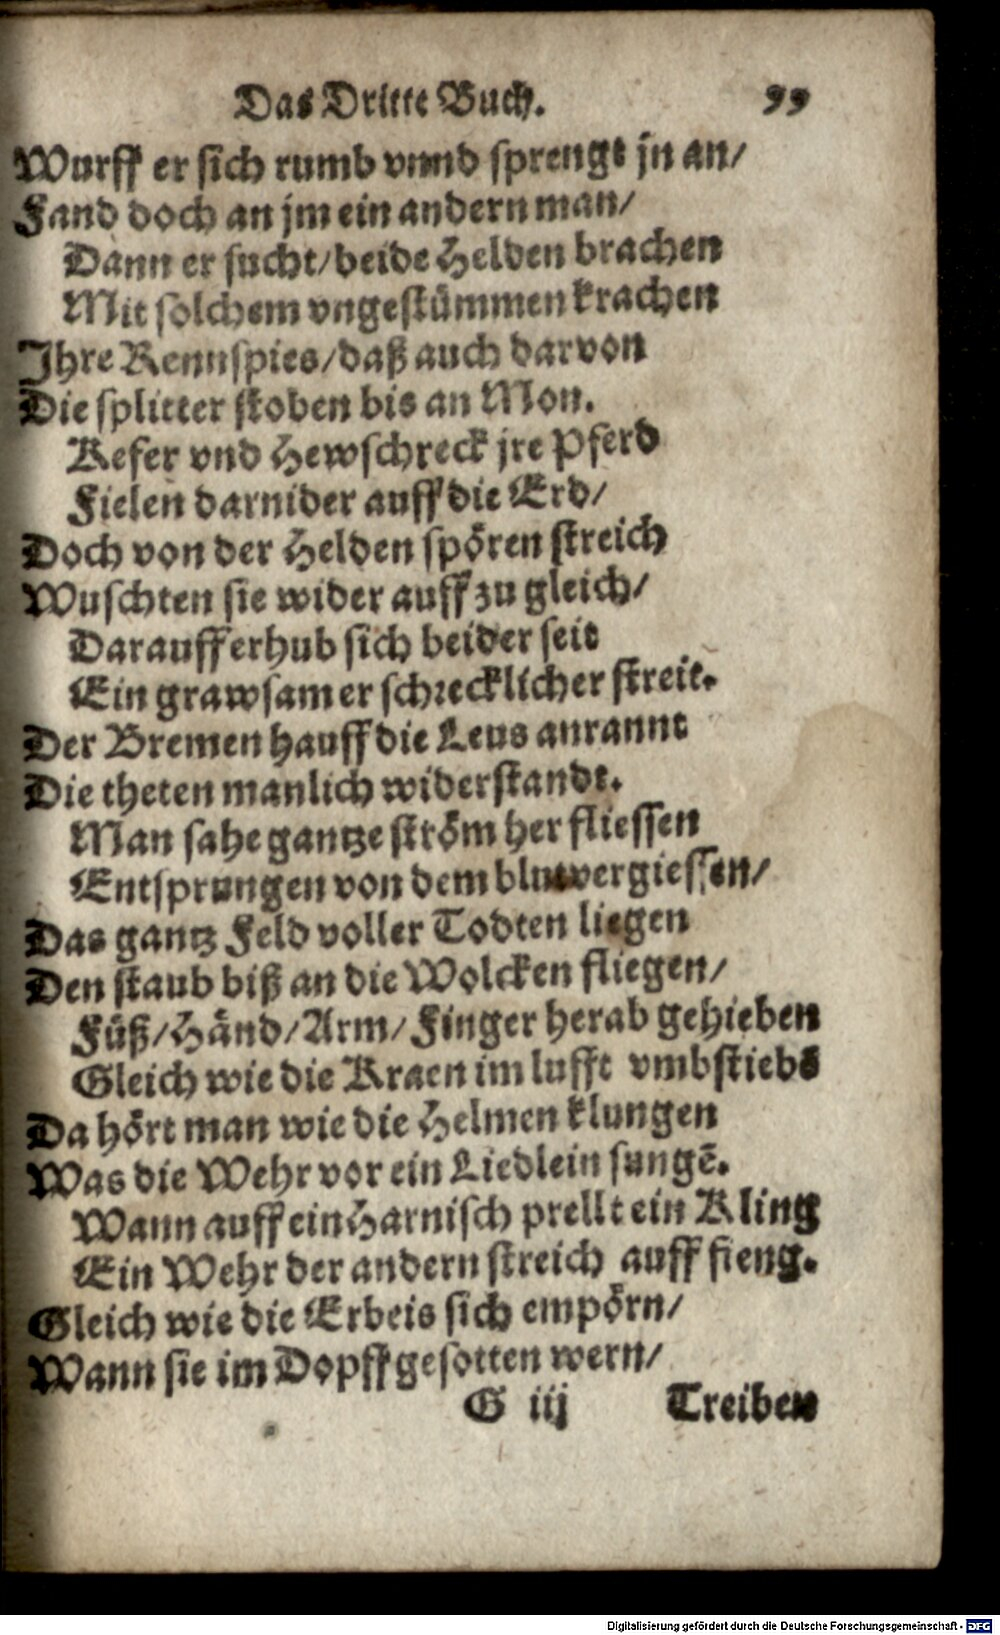 Das Dritte Buch. 99
Wurff er sich rumb vnnd sprengt jn an/
Fand doch an jm ein andern man/
Dann er sucht/beide Helden brachen
Mit solchem vngestümmen krachen
Ihre Rennspies/daß auch darvon
Die splitter stoben bis an Mon.
Kefer vnd Hewschreck jre Pferd
Fielen darnider auff die Erd/
Doch von der Helden spören streich
Wuschten sie wider auff zu gleich/
Darauff erhub sich beider seit
Ein grawsamer schrecklicher streit.
Der Bremen hauff die Leus anrannt
Die theten manlich widerstandt.
Man sahe gantze ström her fliessen
Entsprungen von dem blutvergiessen/
Das gantz Feld voller Todten liegen
Den staub biß an die Wolcken fliegen/
Füß/Händ/Arm/Finger herab gehieben
Gleich wie die Kraen im lufft vmbstiebē
Da hört man wie die Helmen klungen
Was die Wehr vor ein Liedlein sungē.
Wann auff ein Harnisch prellt ein Kling
Ein Wehr der andern streich auff fieng.
Gleich wie die Erbeis sich empörn/
Wann sie im Dopff gesotten wern/
G iij Treiben
Digitalisierung gefördert durch die Deutsche Forschungsgemeinschaft - DFG